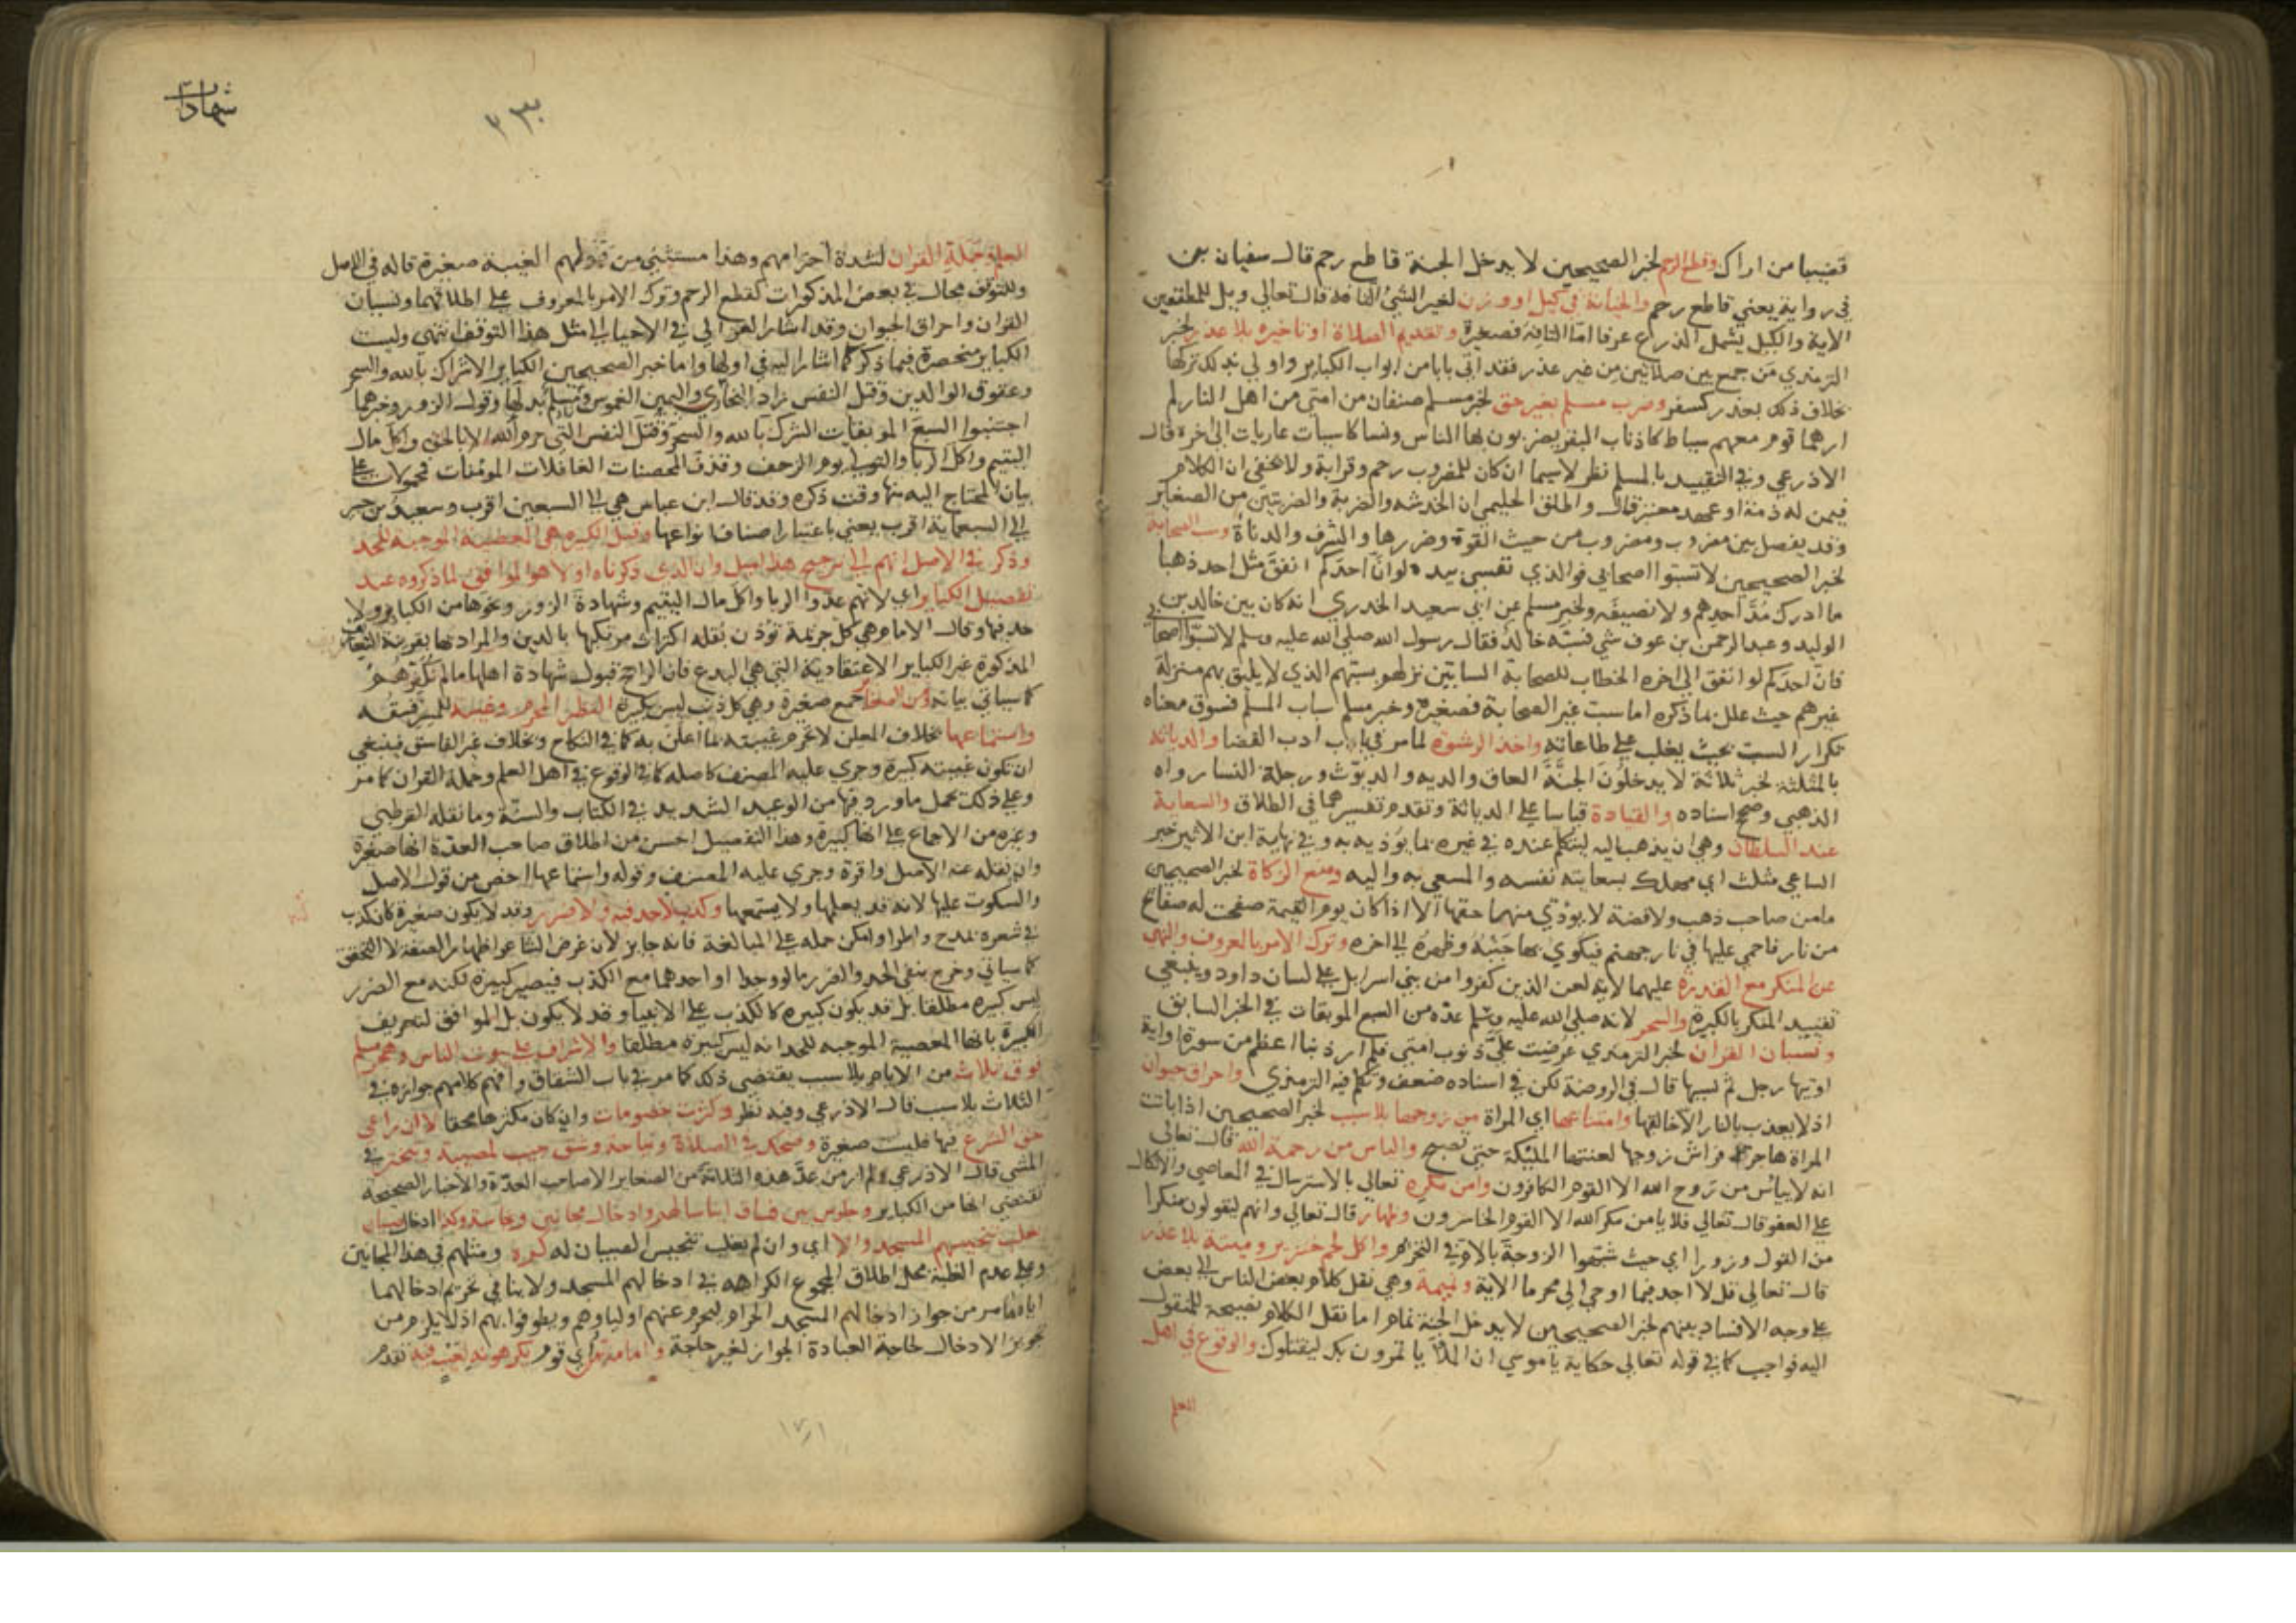 قضيبا من اراك وقطع الرحم لخبر الصحيحين لا يدخل الجنة قاطع رحم قال سفيان بن
في رواية يعني قاطع رحم والخيانة في كيل او وزن لغير الشئ التافه قال تعالي ويل للمطففين
الاية والكيل يشمل الذرع عرفا اما التافه فصغيرة وتقديم الصلاة او تاخيره بلا عذر لخبر
الترمذي من جمع بين صلاتين من غير عذر فقد اتي بابا من ابواب الكباير واولي بذلك تركها
بخلاف ذلك بعذر كسفر وضرب مسلم بغير حق لخبر مسلم صنفان من امتي من اهل النار لم
ارهما قوم معهم سياط كاذناب البقر يضربون بها الناس ونسا كاسيات عاريات الي اخره قال
الاذرعي وفي التقييد بالمسلم نظر لاسيما ان كان للمضروب رحم وقرابة ولا يخفي ان الكلام
فيمن له ذمة او عهد معتبر قال واطلق الحليمي ان الخدشه والضربة والضربتين من الصغاير
وقد يفصل بين مضروب ومضروب من حيث القوة وضررها والشرف والدناة وسب الصحابة
لخبر الصحيحين لا تسبوا اصحابي فوالذي نفسي بيده لو انّ احدكم انفق مثل احد ذهبا
ما ادرك مدّ احدهم ولا نصيفه ولخبر مسلم عن ابي سعيد الخدري انه كان بين خالد بن
الوليد وعبد الرحمن بن عوف شي فسبّه خالد فقال رسول الله صلي الله عليه وسلم لا تسبّوا اصحابي
فان احدكم لو انفق الي اخره الخطاب للصحابة السابين نزلهم بسبهم الذي لا يليق بهم منزلة
غيرهم حيث علل بما ذكره اما سب غير الصحابة فصغيرة وخبر مسلم سباب المسلم فسوق معناه
تكرار السب بحيث يغلب علي طاعاته واخذ الرشوة لما مر في باب ادب القضا والدياثه
بالمثلثة لخبر ثلاثة لا يدخلون الجنّة العاق والديه والديوّث ورجلة النسا رواه
الذهبي وصح اسناده والقيادة قياسا علي الدياثة وتقدم تفسيرهما في الطلاق والسعاية
عند السلطان وهي ان يذهب اليه ليتكلم عنده في غيره بما يؤذيه به وفي نهاية ابن الاثير خبر
الساعي مثلث اي مهلك بسعايته نفسه والمسعي به واليه ومنع الزكاة لخبر الصحيحين
ما من صاحب ذهب ولا فضة لا يؤدّي منهما حقها الا اذا كان يوم القيمة صفحت له صفائح
من نار فاحمي عليها في نار جهنم فيكوي بها جنبه وظهره الي اخره وترك الامر بالمعروف والنهي
عن المنكر مع القدرة عليهما لاية لعن الذين كفروا من بني اسرايل علي لسان داود وينبغي
تقييد المنكر بالكبيرة والسحر لانه صلي الله عليه وسلم عدّه من السبع الموبقات في الخبر السابق
ونسيان القران لخبر الترمذي عرضت عليّ ذنوب امتي فلم ار ذنبا اعظم من سورة او اية
اوتيها رجل ثم نسيها قال في الروضة لكن في اسناده ضعف وتكلم فيه الترمذي واحراق حيوان
اذ لا يعذب بالنار الا خالقها وامتناعها اي المراة من زوجها بلا سبب لخبر الصحيحين اذا باتت
المراة هاجرة فراش زوجها لعنتها المليكة حتي تصبح والياس من رحمة الله قال تعالي
انه لا ييائس من روح الله الا القوم الكافرون وامن مكره تعالي بالاسترسال في المعاصي والاتكال
علي العفو قال تعالي فلا يامن مكر الله الا القوم الخاسرون وظهار قال تعالي وانهم ليقولون منكرا
من القول وزورا اي حيث شبهوا الزوجة بالام في التحريم واكل لحم خنزير وميتة بلا عذر
قال تعالي قل لا اجد فيما اوحي الي محرما الاية ونميمة وهي نقل كلام بعض الناس الي بعض
علي وجه الافساد بينهم لخبر الصحيحين لا يدخل الجنة نمام اما نقل الكلام نصيحة للمنقول
اليه فواجب كما في قوله تعالي حكاية يا موسي ان الملا ياتمرون بك ليقتلوك والوقوع في اهل
العلم
شهادات
٢٣٠
العلم وحملة القران لشدة احترامهم وهذا مستثني من قولهم الغيبة صغيرة قاله في الاصل
وللتوقف مجال في بعض المذكورات كقطع الرحم وترك الامر بالمعروف علي اطلاقهما ونسيان
القران واحراق الحيوان وقد اشار الغزالي في الاحيا الي مثل هذا التوقف انتهي وليست
الكباير منحصرة فيما ذكر كما اشار اليه في اولها واما خبر الصحيحين الكباير الاشراك بالله والسحر
وعقوق الوالدين وقتل النفس زاد البخاري واليمين الغموس ومسلم بدلها وقول الزور وخبرهما
اجتنبوا السبع الموبقات الشرك بالله والسحر وقتل النفس التي حرم الله الا بالحق واكل مال
اليتيم واكل الربا والتولي يوم الزحف وقذف المحصنات الغافلات المومنات فمحمولان علي
بيان المحتاج اليه منها وقت ذكره وقد قال ابن عباس هي الي السبعين اقرب وسعيد بن جبير
الي السبعماية اقرب يعني باعتبار اصناف انواعها وقيل الكبيره هي المعصية الموجبه للحد
وذكر في الاصل انهم الي ترجيح هذا اميل وان الذي ذكرناه اولا هو الموافق لما ذكروه عند
تفصيل الكباير اي لانهم عدّوا الربا واكل مال اليتيم وشهادة الزور ونحوها من الكباير ولا
حد فيها وقال الامام هي كل جريمة تؤذن بقلة اكتراث مرتكبها بالدين والمراد بها بقرينة التعاريف
المذكورة غير الكباير الاعتقادية التي هي البدع فان الراجح قبول شهادة اهلها ما لم نكفرهم
كما سياتي بيانه ومن الصغاير جمع صغيرة وهي كل ذنب ليس بكبيرة النظر المحرم وغيبة للمسر فسقه
واستماعها بخلاف المعلن لا تحرم غيبته بما اعلن به كما في النكاح وبخلاف غير الفاسق فينبغي
ان تكون غيبته كبيرة وجري عليه المصنف كاصله كما في الوقوع في اهل العلم وحملة القران كما مر
وعلي ذلك يحمل ما ورد فيها من الوعيد الشديد في الكتاب والسنّة وما نقله القرطبي
وغيره من الاجماع علي انها كبيرة وهذا التفصيل احسن من اطلاق صاحب العدّة انها صغيرة
وان نقله عنه الاصل واقره وجري عليه المصنف وقوله واستماعها اخص من قول الاصل
والسكوت عليها لانه قد يعلمها ولا يستمعها وكذب لا حد فيه ولا ضرر وقد لا يكون صغيرة كان كذب
في شعره بمدح واطرا وامكن حمله علي المبالغة فانه جايز لان غرض الشاعر اظهار الصنعة لا التحقق
كما سياتي وخرج بنفي الحد والضرر ما لو وجدا او احدهما مع الكذب فيصير كبيرة لكنه مع الضرر
ليس كبيره مطلقا بل قد يكون كبيره كالكذب علي الانبيا وقد لا يكون بل الموافق لتعريف
الكبيرة بانها المعصية الموجبه للحد انه ليس كبيرة مطلقا والاشراف علي بيوت الناس وهجر مسلم
فوق ثلاث من الايام بلا سبب يقتضي ذلك كما مر في باب الشقاق وافهم كلامهم جوازه في
الثلاث بلا سبب قال الاذرعي وفيه نظر وكثرت خصومات وان كان مكثرها محقا لا ان راعي
حق الشرع فيها فليست صغيرة وضحك في الصلاة ونياحة وشق جيب لمصيبة وتبختر في
المشي قال الاذرعي ولم ار من عدّ هذه الثلاثة من الصغاير الا صاحب العدّة والاخبار الصحيحه
تقتضي انها من الكباير وجلوس بين فساق ايناسا لهم وادخال مجانين ونجاسة وكذا ادخال صبيان
يغلب تنجيسهم المسجد والا اي وان لم يغلب تنجيس الصبيان له كره ومثلهم في هذا المجانين
وعلي عدم الغلبة يحمل اطلاق المجموع الكراهه في ادخالهم المسجد ولا ينافي تحريم ادخالهما
اياه ما مر من جواز ادخالهم المسجد الحرام ليحرم عنهم اولياوهم ويطوفوا بهم اذ لا يلزم من
تجويز الادخال لحاجة العبادة الجواز لغير حاجة وامامة قوم اي قوم يكرهونه لعيب فيه تقدم